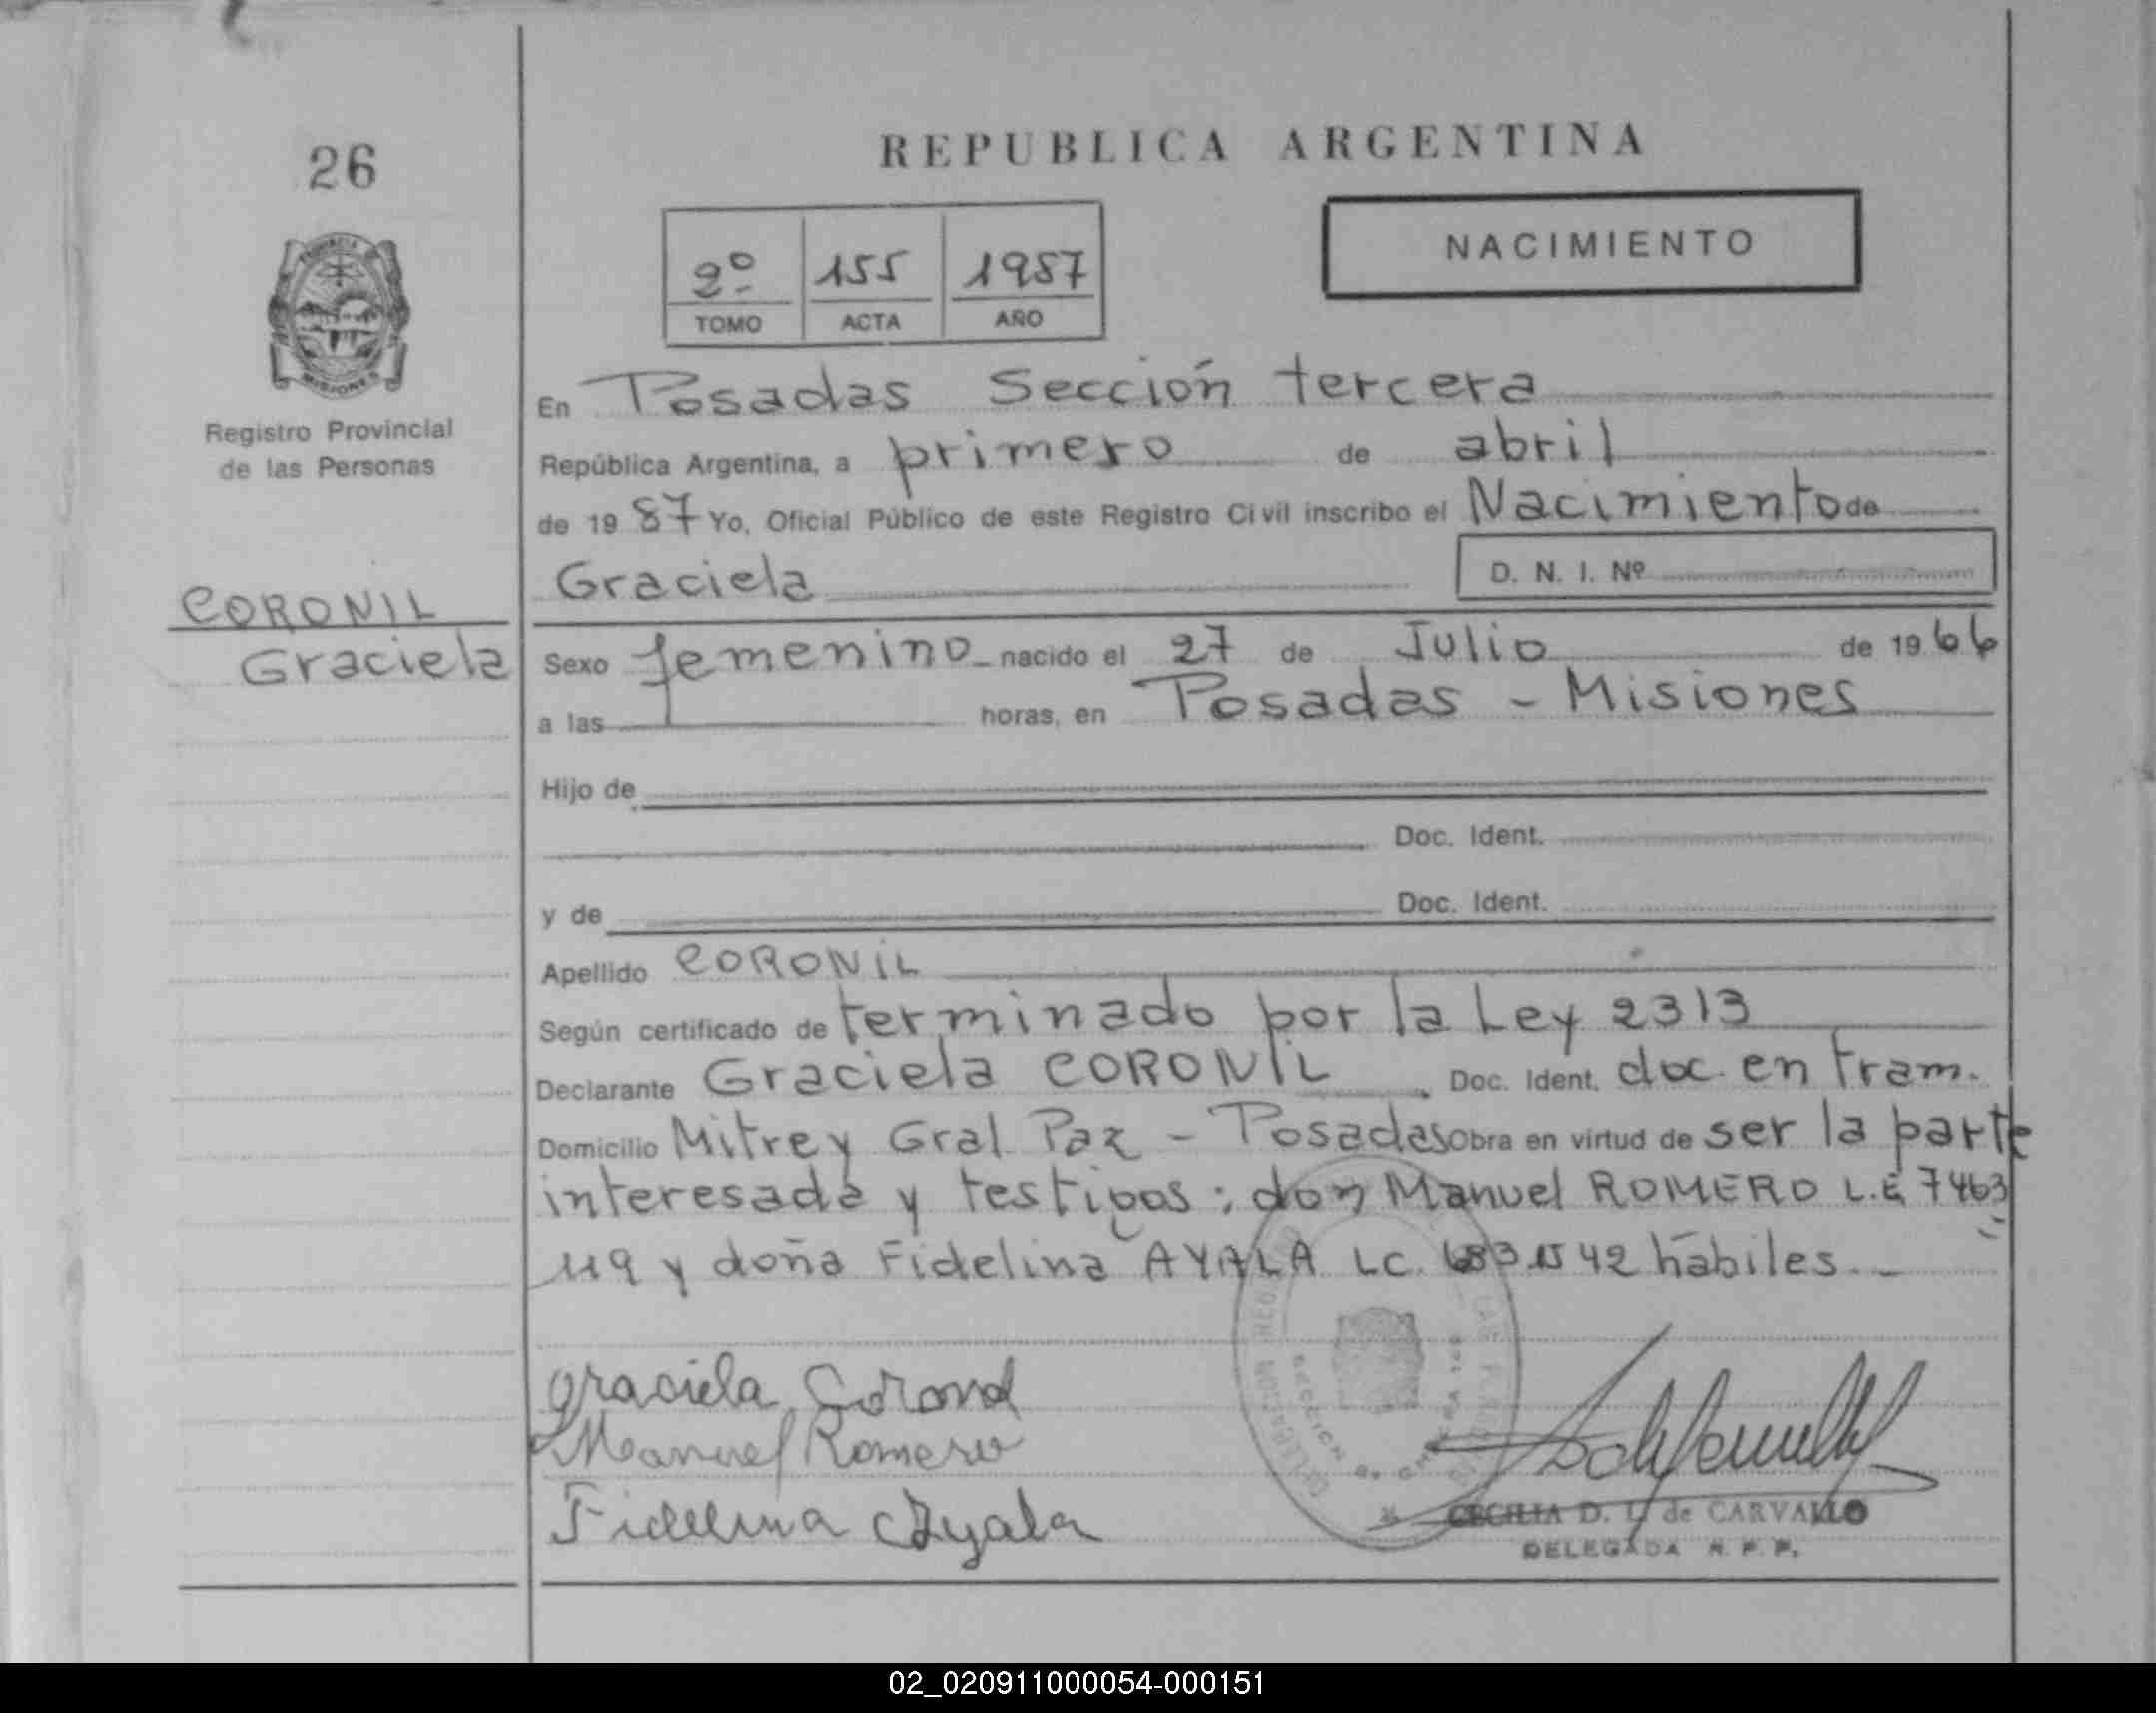 26
REPUBLICA ARGENTINA
2º 155 1987
TOMO ACTA AÑO
NACIMIENTO
Registro Provincial
de las Personas
CORONIL
Graciela
En Posadas Sección tercera
República Argentina, a primero de abril
de 19 87 Yo, Oficial Público de este Registro Civil inscribo el Nacimiento de
Graciela D. N. I. Nº
Sexo femenino nacido el 27 de Julio de 19 66
a las horas, en Posadas - Misiones
Hijo de
Doc. Ident.
y de Doc. Ident.
Apellido CORONIL
Según certificado de terminado por la Ley 2313
Declarante Graciela CORONIL Doc. Ident. doc. en tram.
Domicilio Mitre y Gral Paz - Posadas obra en virtud de ser la parte
interesada y testigos: don Manuel ROMERO L.E 7463
119 y doña Fidelina AYALA LC. hábiles.
Graciela Coronil
Manuel Romero
Fidelina Ayala
CECILIA D. L. de CARVALLO
DELEGADA R. P. P.
02_020911000054-000151